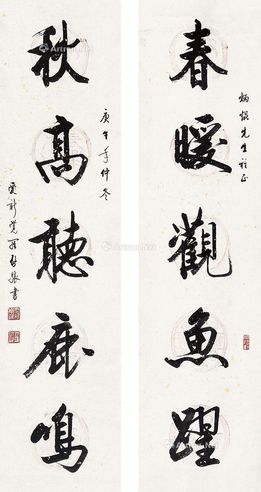 春暖觀魚躍
先生
秋高聽鹿鳴
庚午年仲冬
愛新覺羅啟驤書